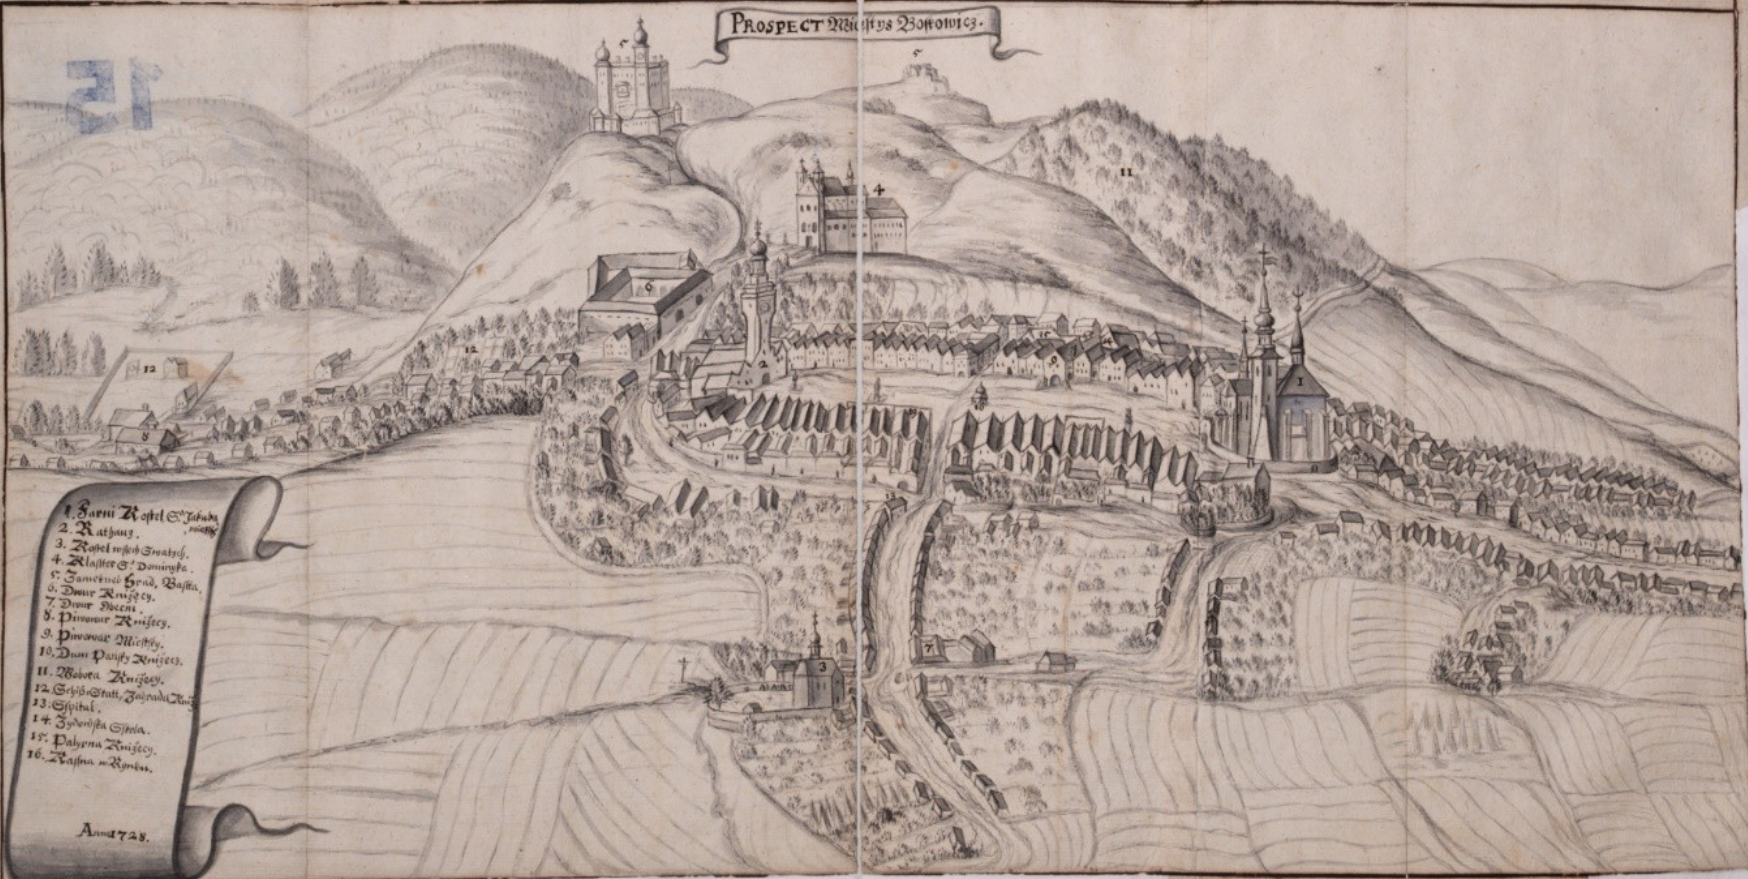 PROSPECT Miestys Boskowicz.
1. Farni Kostel S. Jakuba
2. Rathauz.
3. Kostel wssech Swatych.
4. Klasster S. Dominyka.
5. Zamek neb Hrad, Bassta.
6. Dwur Knižecy.
7. Dwur Obecni.
8. Piwowar Knižecy.
9. Piwowar Miestsky.
10. Dum Pansky Knižecy.
11. Wobora Knižecy.
12. Zahrada
13. Sspital.
14. Zydowska Sskola.
15. Palyrna Knižecy.
16. Kassna w Rynku.
Anno 1728.
15
5
5
11
4
6
12
12
2
9
1
8
3
7